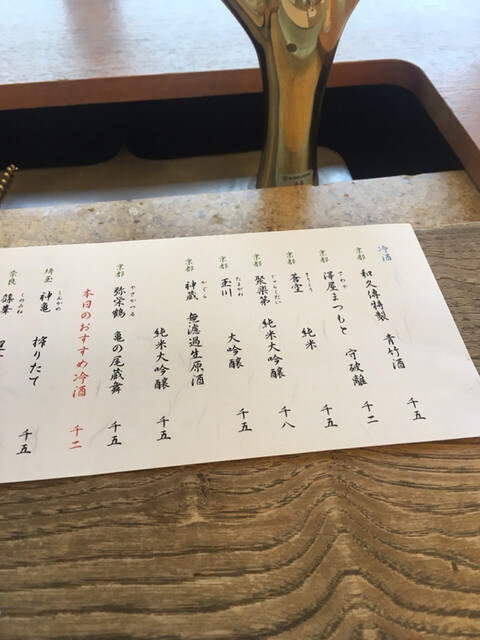 冷酒
京都 和久傳特製 青竹酒 千五
さわや
京都 澤屋まつもと 守破離 千二
京都 蒼空 純米 千五
じゅらくだい
京都 聚楽第 純米大吟醸 千八
たまがわ
京都 玉川 大吟醸 千五
かぐら
京都 神蔵 無濾過生原酒
純米大吟醸 千五
やさかつる
京都 弥栄鶴 亀の尾蔵舞 千五
本日のおすすめ冷酒 千二
しんかめ
埼玉 神亀 搾りたて 千五
しのみね
奈良 篠峯